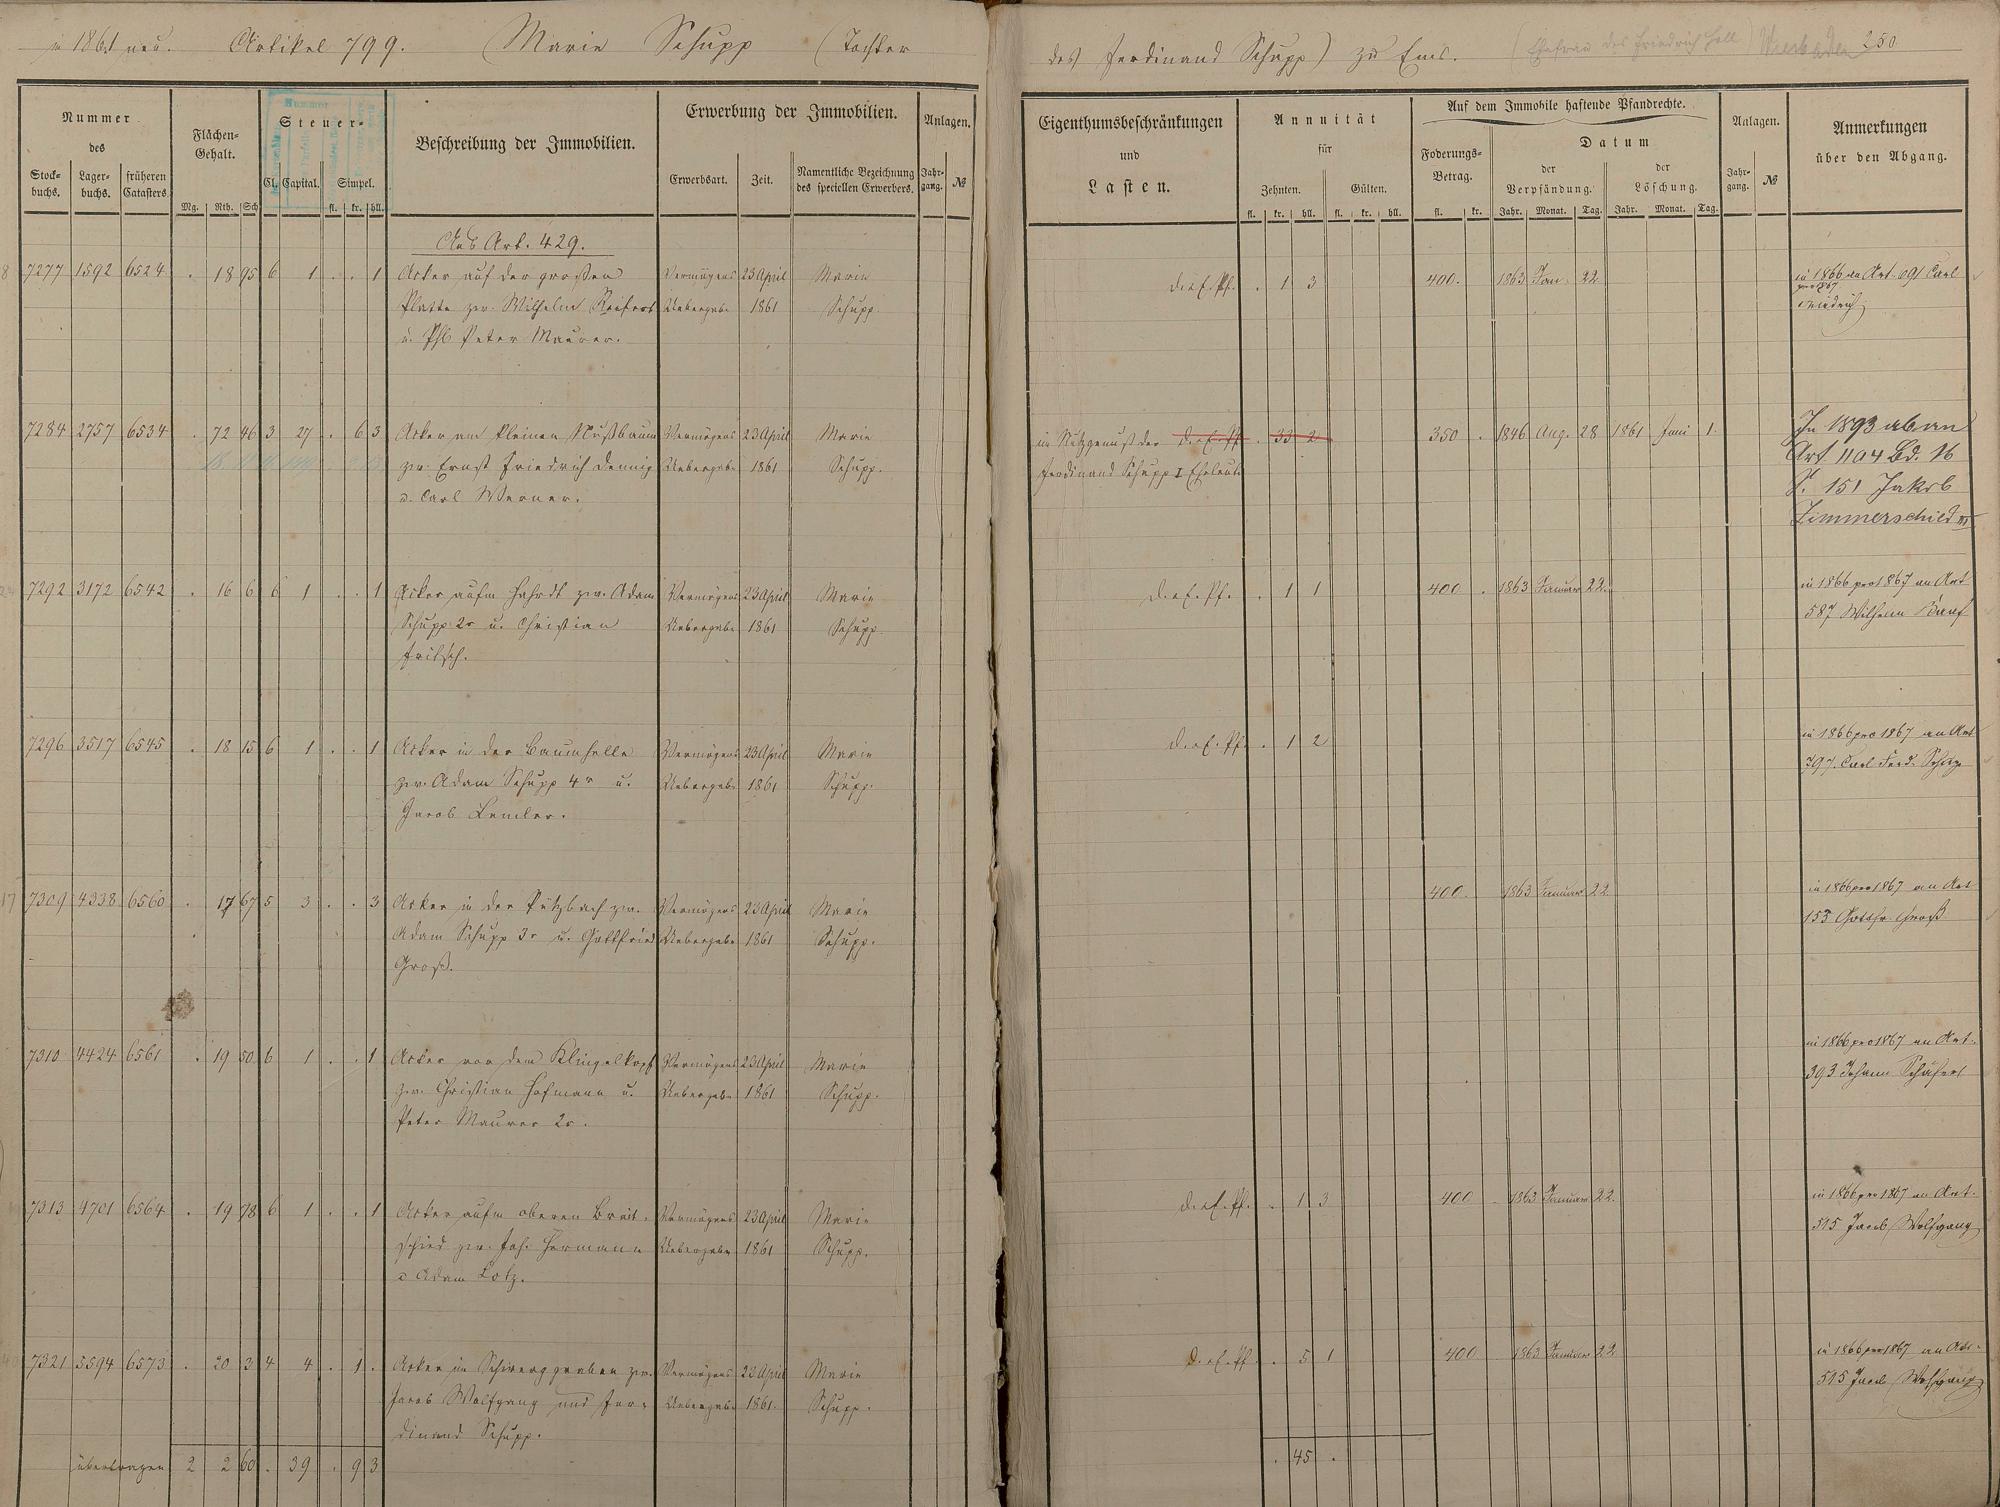 in 1861 neu. Artikel 799. (Marie Schupp (Tochter des Ferdinand Schupp) zu Ems. (Ehefrau des Friedrich Wiesbaden 250
Nummer
des
Stock-
buchs.
Lager-
buchs.
früheren
Catasters
Flächen-
Gehalt.
Mg. Rth. Sch
Steuer-
Cl. Capital. Simpel.
fl. kr. hll.
Beschreibung der Immobilien.
Erwerbung der Immobilien.
Erwerbsart. Zeit.
Namentliche Bezeichnung
des speciellen Erwerbers.
Anlagen.
Jahr-
gang. №
Eigenthumsbeschränkungen
und
Lasten.
Annuität
für
Zehnten. Gülten.
fl. kr. hll. fl. kr. hll.
Auf dem Immobile haftende Pfandrechte.
Foderungs-
Betrag.
fl. kr.
Datum
der
Verpfändung.
der
Löschung.
Jahr. Monat. Tag. Jahr. Monat. Tag.
Anlagen.
Jahr-
gang. №
Anmerkungen
über den Abgang.
Aus Art. 429.
7277 1592 6524 . 18 95 6 1 . . 1 Acker auf der großen Vermögens 23 April Marie d. e. Pf. . 1 3 400. 1863 Jan. 22 in 1866 an Art. 691 Carl
pro 1867
Platte zw. Wilhelm Uebergabe 1861 Schupp Friedrich
u. Phl Peter Maurer.
7284 2757 6534 . 72 46 3 27 . 6 3 Acker am kleinen Nußbaum Vermögens 23 April Marie im Nutzgenuß der d. e. Pf . 33 2 350 . 1846 Aug. 28 1861 Juni 1 In 1893 ab an
zw. Ernst Friedrich Dennig Uebergabe 1861 Schupp. Ferdinand Schupp I Eheleute Art 1104 Bd. 16
u. Carl Werner. S. 151 Jakob
Zimmerschild
7292 3172 6542 . 16 6 6 1 . . 1 Acker aufm Hahrdt zw. Adam Vermögens 23 April Marie d. e. Pf. . 1 1 400 . 1863 Januar 22. in 1866 pro 1867 an Art
Schupp 2r u. Christian Uebergabe 1861 Schupp 587 Wilhelm
Fritsch.
7296 3517 6545 . 18 15 6 1 . . 1 Acker in der Baumhelle Vermögens 23 April Marie d. e. Pf. . 1 2 in 1866 pro 1867 an Art
zw. Adam Schupp 4r u. Uebergabe 1861 Schupp. 797. Carl Ferd. Schupp
Jacob Lemler.
7309 4338 6560 . 17 67 5 3 . . 3 Acker in der Pützbach zw. Vermögens 23 April Marie 400. 1863 Januar 22 in 1866 pro 1867 an Art
Adam Schupp 3r u. Gottfried Uebergabe 1861 Schupp. 153 Gottfr. Groß
Groß.
7310 4424 6561 . 19 50 6 1 . . 1 Acker vor dem Klingelkopf Vermögens 23 April Marie in 1866 pro 1867 an Art.
zw. Christian Hofmann u. Uebergabe 1861 Schupp. 393 Johann Schäfer
Peter Maurer 2r.
7313 4701 6564 . 19 78 6 1 . . 1 Acker aufm oberen Breit- Vermögens 23 April Marie d. e. Pf. . 1 3 400 1863 Januar 22 in 1866 pro 1867 an Art.
schied zw. Joh. Hermann Uebergabe 1861 Schupp. 515 Jacob Wolfgang
u Adam Lotz.
7321 5594 6573 . 20 3 4 4 . 1 . Acker im Schwerzgraben zw. Vermögens 23 April Marie d. e. Pf. . 5 1 400 1863 Januar 22 in 1866 pro 1867 an Art.
Jacob Wolfgang und Fer- Uebergabe 1861. Schupp. 515 Jacob Wolfgang
dinand Schupp.
übertragen 2 2 60 . 39 . 9 3 . 45 .